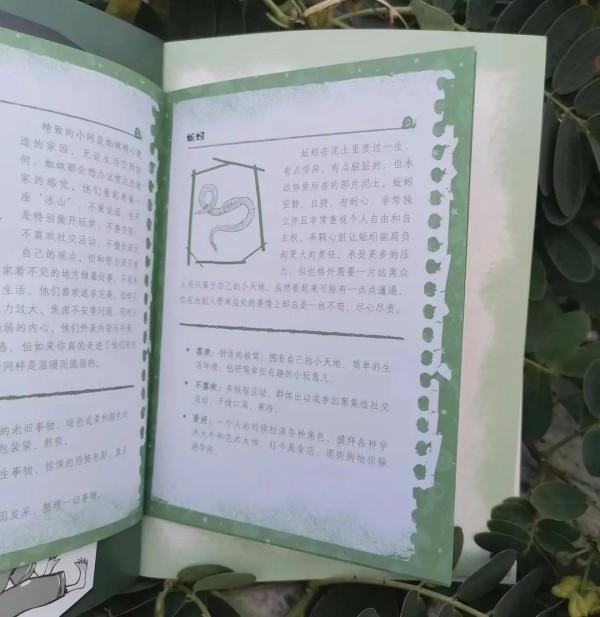 精致的小网是蜘蛛精心建
造的家园，无论生活空间如
何，蜘蛛都会想办法营造出
家的感觉。他们看起来像一
座“冰山”，不爱说话，也不
是特别爱开玩笑，不喜交际，
不喜欢社交活动，不擅长表达
自己的观点。但和努力
家看不见的地方做着好事，不做
生活。他们喜欢追求完美，
力过大、焦虑不安等问题，
脆弱的内心。他们外表内敛而
感，但如果你真的走进了他们的
同样是温暖而脆弱的。
的老旧事物、暗色或柔和颜色的
包装袋、熬夜。
生事物、惊悚的恐怖电影、
园发呆、整理一切事物。
蚯蚓
蚯蚓在泥土里度过一生，
有点怪异，有点脏脏的，但永
远热爱所在的那片泥土。蚯蚓
安静、自持、有耐心，非常独
立并且非常重视个人自由和自
主权。多颗心脏让蚯蚓能肩负
起更大的责任、承受更多的压
力，但也格外需要一片远离众
人而只属于自己的小天地。虽然看起来可能有一点点邋遢，
但在为别人带来益处的事情上却总是一丝不苟、尽心尽责。
• 喜欢：舒适的被窝、拥有自己的小天地、简单的生
活环境、钻研简单但有趣的小玩意儿。
• 不喜欢：多线程互动、群体出动或参加聚集性社交
活动、干燥口渴、寒冷。
• 爱好：一个人的时候扮演各种角色、膜拜各种学
术大牛和艺术大师、打卡美食店、逛街购物但躲
避导购。